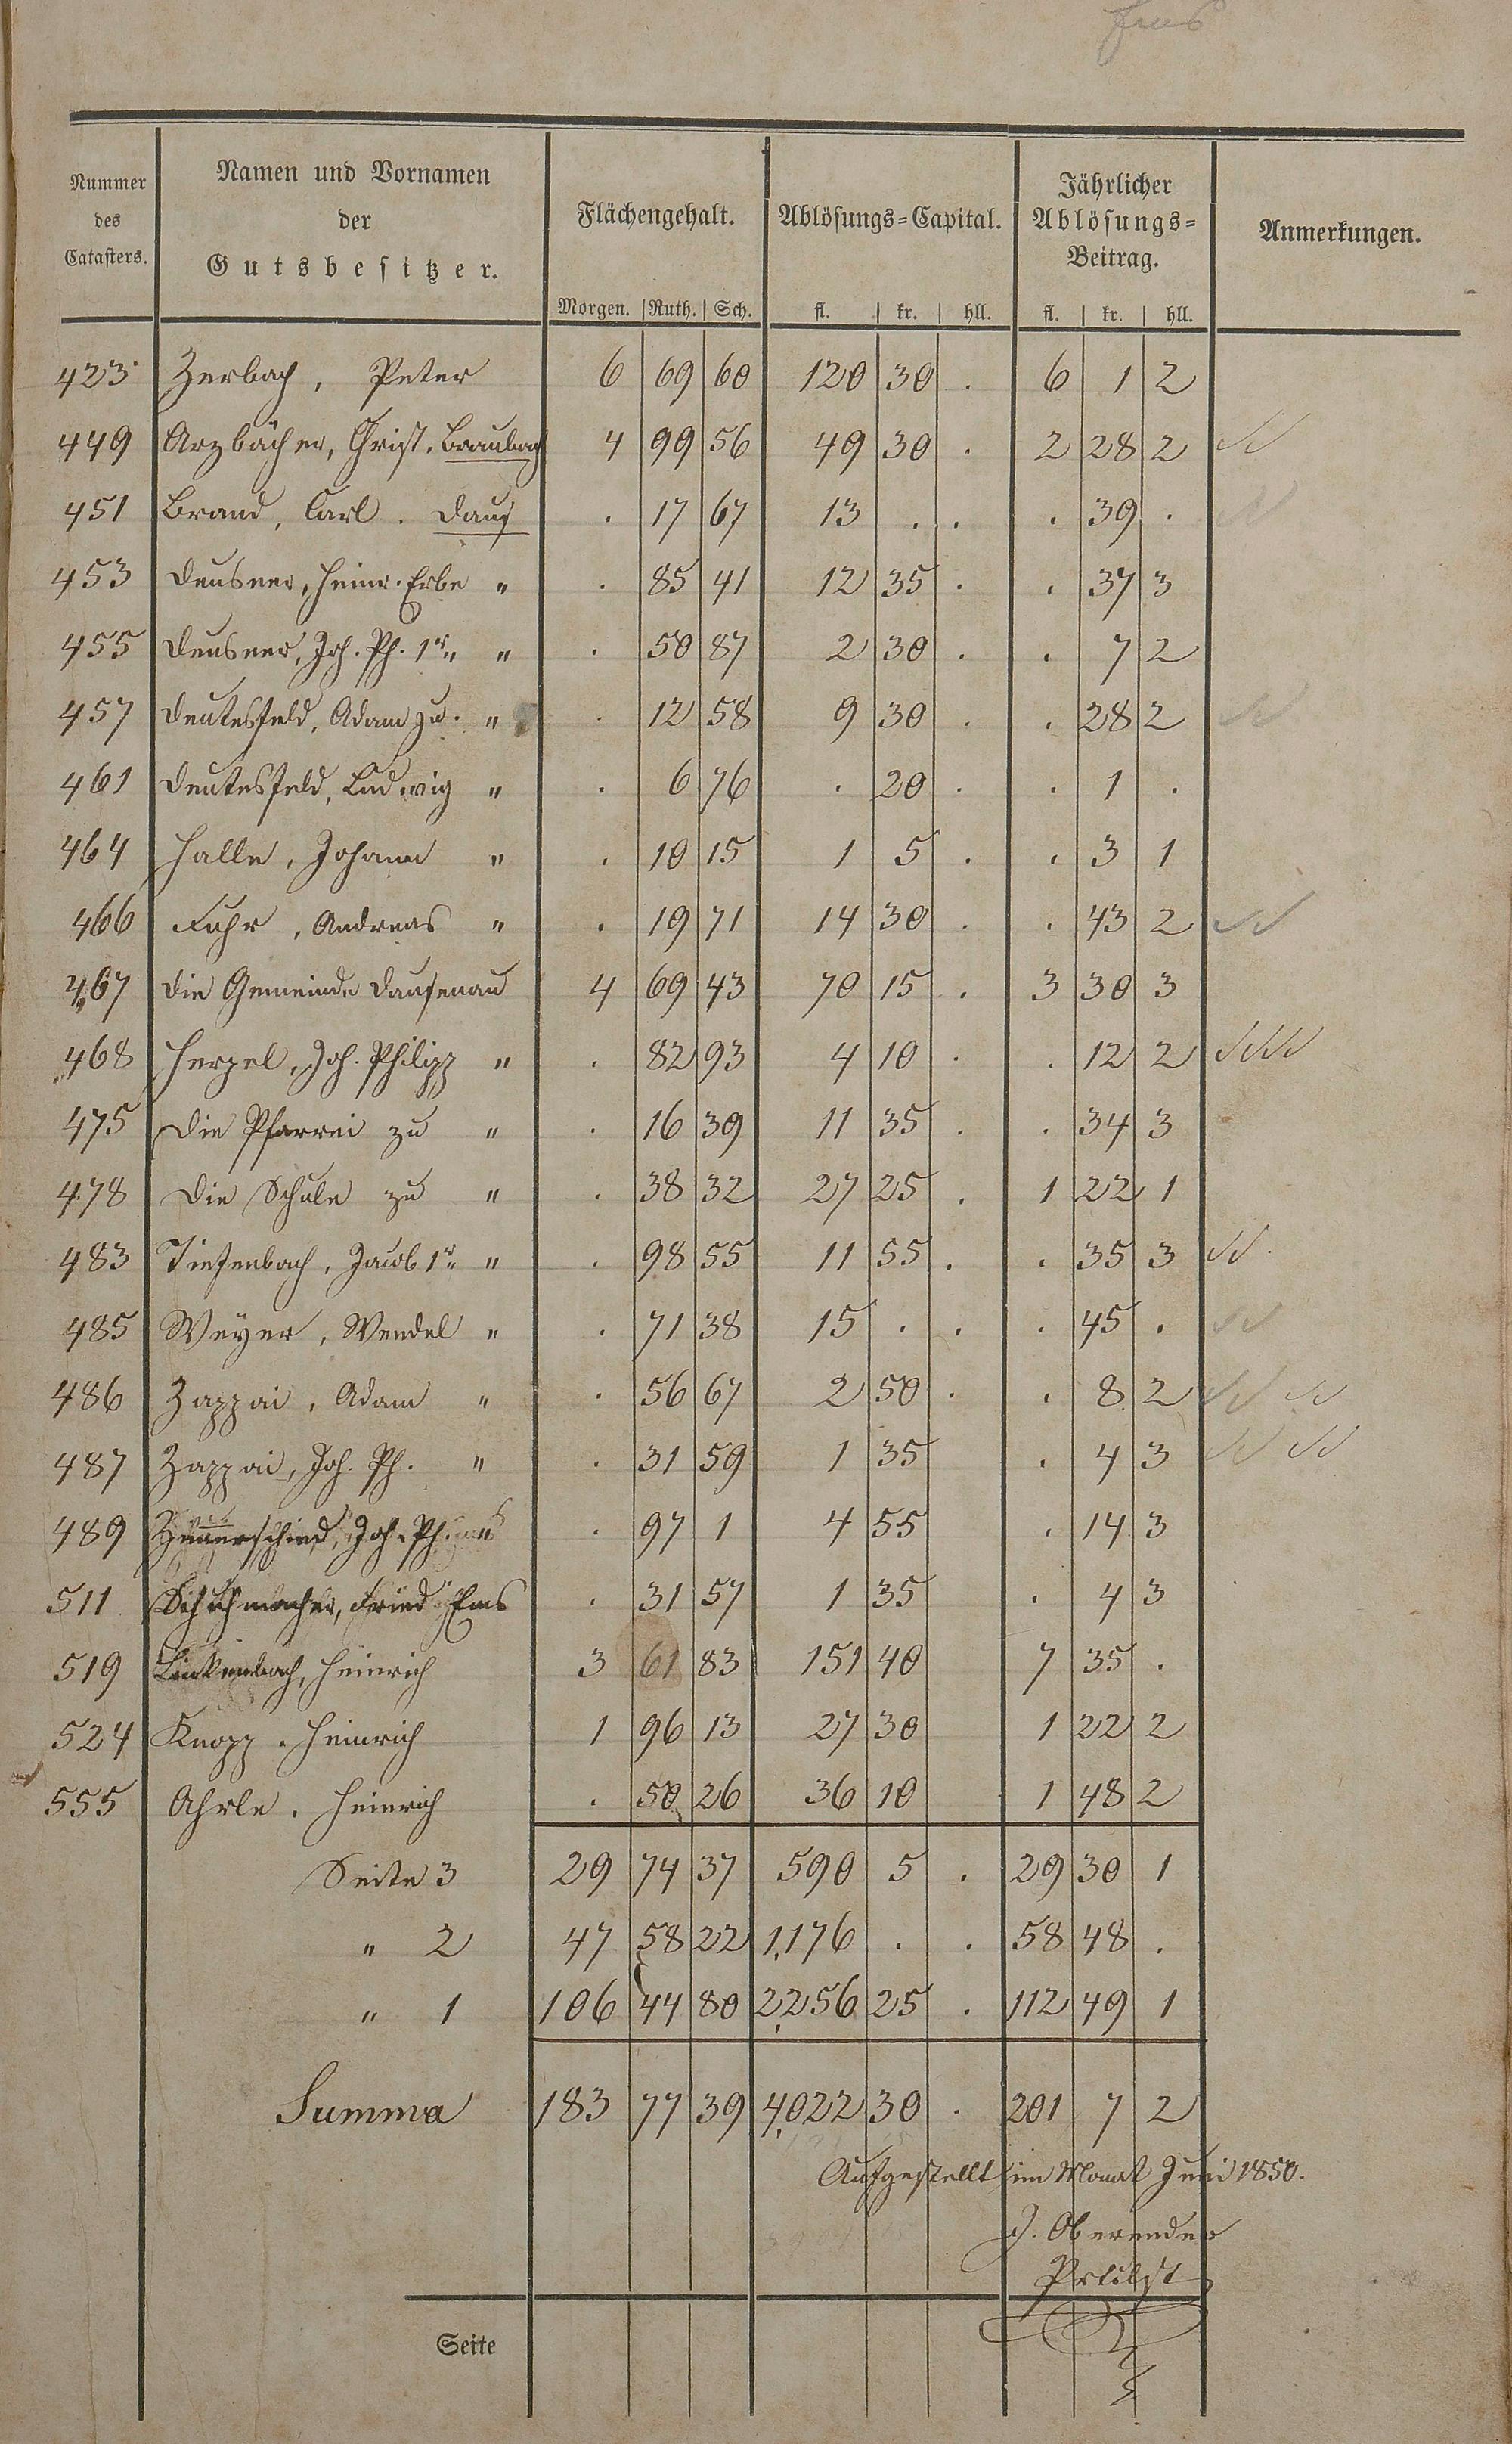 Ems
Nummer des Catasters. | Namen und Vornamen der Gutsbesitzer. | Flächengehalt. | Ablösungs=Capital. | Jährlicher Ablösungs=Beitrag. | Anmerkungen.
Morgen. | Ruth. | Sch. | fl. | kr. | hll. | fl. | kr. | hll.
423 Zerbach, Peter 6 69 60 120 30 . 6 1 2
449 Arzbächer, Christ. Braubach 4 99 56 49 30 . 2 28 2
451 Brand, Carl. Dauf . 17 67 13 . . . 39 .
453 Deusner, Heinr. Erbe " . 85 41 12 35 . . 37 3
455 Deusner, Joh. Ph. 1r " " . 50 87 2 30 . . 7 2
457 Deutesfeld, Adam zu. " . 12 58 9 30 . . 28 2
461 Deutesfeld, Ludwig " . 6 76 . 20 . . 1 .
464 Halle, Johann " . 10 15 1 5 . . 3 1
466 Fuhr, Andreas " . 19 71 14 30 . . 43 2
467 Die Gemeinde Dausenau 4 69 43 70 15 . 3 30 3
468 Herpel, Joh. Philipp " . 82 93 4 10 . . 12 2
475 Die Pfarrei zu " . 16 39 11 35 . . 34 3
478 Die Schule zu " . 38 32 27 25 . 1 22 1
483 Tiefenbach, Jacob 1r " " . 98 55 11 55 . . 35 3
485 Weyer, Wendel " . 71 38 15 . . . 45 .
486 Zappai, Adam " . 56 67 2 50 . . 8 2
487 Zappai, Joh. Ph. " . 31 59 1 35 . 4 3
489 Joh. Ph. . 97 1 4 55 . 14 3
511 Schuhmacher, Fried Ems . 31 57 1 35 . 4 3
519 Linkenbach, Heinrich 3 61 83 151 40 7 35 .
524 Knopp. Heinrich 1 96 13 27 30 1 22 2
555 Ahrle. Heinrich . 50 26 36 10 1 48 2
Seite 3 29 74 37 590 5 . 29 30 1
" 2 47 58 22 1,176 . . 58 48 .
" 1 106 44 80 2,256 25 . 112 49 1
Summa 183 77 39 4,022 30 . 201 7 2
Aufgestellt im Monat Juni 1850.
J. Oberender
Seite